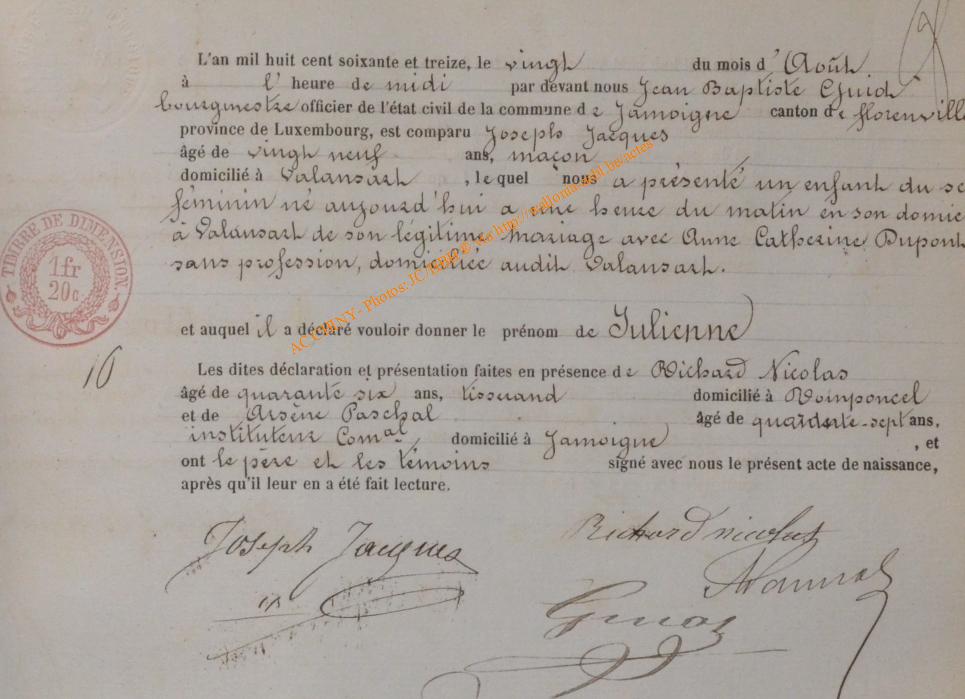 L'an mil huit cent soixante et treize, le vingt du mois d'Août
à l'heure de midi par devant nous Jean Baptiste
bourgmestre officier de l'état civil de la commune de Jamoigne canton de florenville
province de Luxembourg, est comparu Joseph Jacques
âgé de vingt neuf ans, maçon
domicilié à Valansart, le quel nous a présenté un enfant du se
féminin né aujourd'hui a une heure du matin en son domic
à Valansart de son légitime mariage avec Anne Catherine Dupont
sans profession, domiciliée audit Valansart.
TIMBRE DE DIMENSION.
1 fr
20 c
et auquel il a déclaré vouloir donner le prénom de Julienne
16
Les dites déclaration et présentation faites en présence de Richard Nicolas
âgé de quarante six ans, tisserand domicilié à Romponcel
et de Arsène Paschal âgé de quarante-sept ans,
instituteur Comal, domicilié à Jamoigne, et
ont le père et les témoins signé avec nous le présent acte de naissance,
après qu'il leur en a été fait lecture.
Joseph Jacques
Richard nicolas